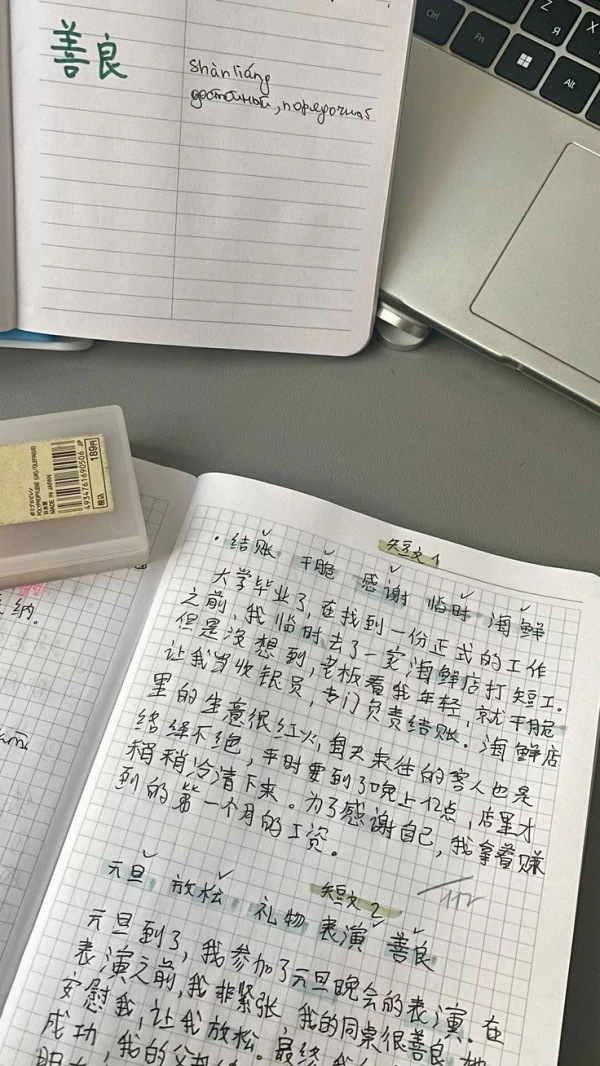 善良
shàn liáng
достойный, порядочный
Ctrl
Fn
Alt
Z
Я
X
189円
税込
4934761690506 JP
MADE IN JAPAN
日本製
纳。
短文1
· 结账 干脆 感谢 临时 海鲜
大学毕业了,在找到一份正式的工作
之前,我临时去了一家海鲜店打短工。
但是没想到,老板看我年轻,就干脆
让我当收银员,专门负责结账。海鲜店
里的生意很红火,每天来往的客人也是
络绎不绝,平时要到了晚上12点,店里才
稍稍冷清下来。为了感谢自己,我拿着赚
到的第一个月的工资。
112
短文2
元旦 放松 礼物 表演 善良
元旦到了,我参加了元旦晚会的表演。在
表演之前,我非紧张,我的同桌很善良,她
安慰我,让我放松。最终
成功,我的父母